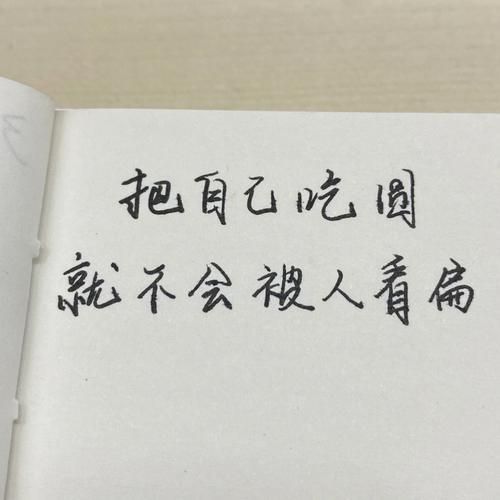 把自己吃圆
就不会被人看扁